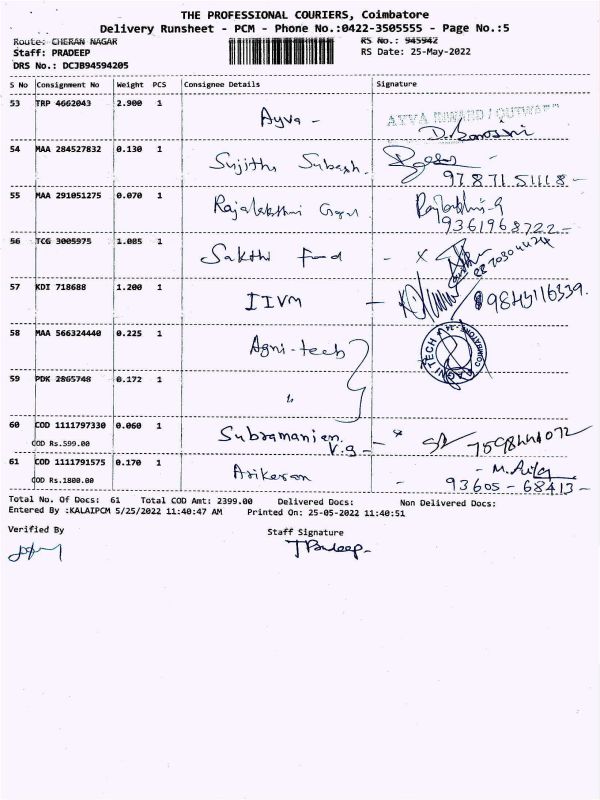 THE PROFESSIONAL COURIERS, Coimbatore
Delivery Runsheet - PCM - Phone No.:0422-3505555 - Page No.:5
Route: CHERAN NAGAR RS No.: 945942
Staff: PRADEEP RS Date: 25-May-2022
DRS No.: DCJB94594205
S No Consignment No Weight PCS Consignee Details Signature
53 TRP 4662043 2.900 1 Ayva - AYVA INWARD / OUTWARD
54 MAA 284527832 0.130 1 Sujitha Subash.
97871 51118 -
55 MAA 291051275 0.070 1 Rajalakshmi
9361968722 -
56 TCG 3005975 1.085 1 Sakthi Fund - x
57 KDI 718688 1.200 1 IIVM -
58 MAA 566324440 0.225 1 Agni-tech AGNITECH COIMBATORE
59 PDK 2865748 0.172 1 "
60 COD 1111797330 0.060 1 Subramanian
V.g -
COD Rs.599.00
61 COD 1111791575 0.170 1 Arikaran -
COD Rs.1800.00 93605 - 68413 -
Total No. Of Docs: 61 Total COD Amt: 2399.00 Delivered Docs: Non Delivered Docs:
Entered By :KALAIPCM 5/25/2022 11:40:47 AM Printed On: 25-05-2022 11:40:51
Verified By Staff Signature